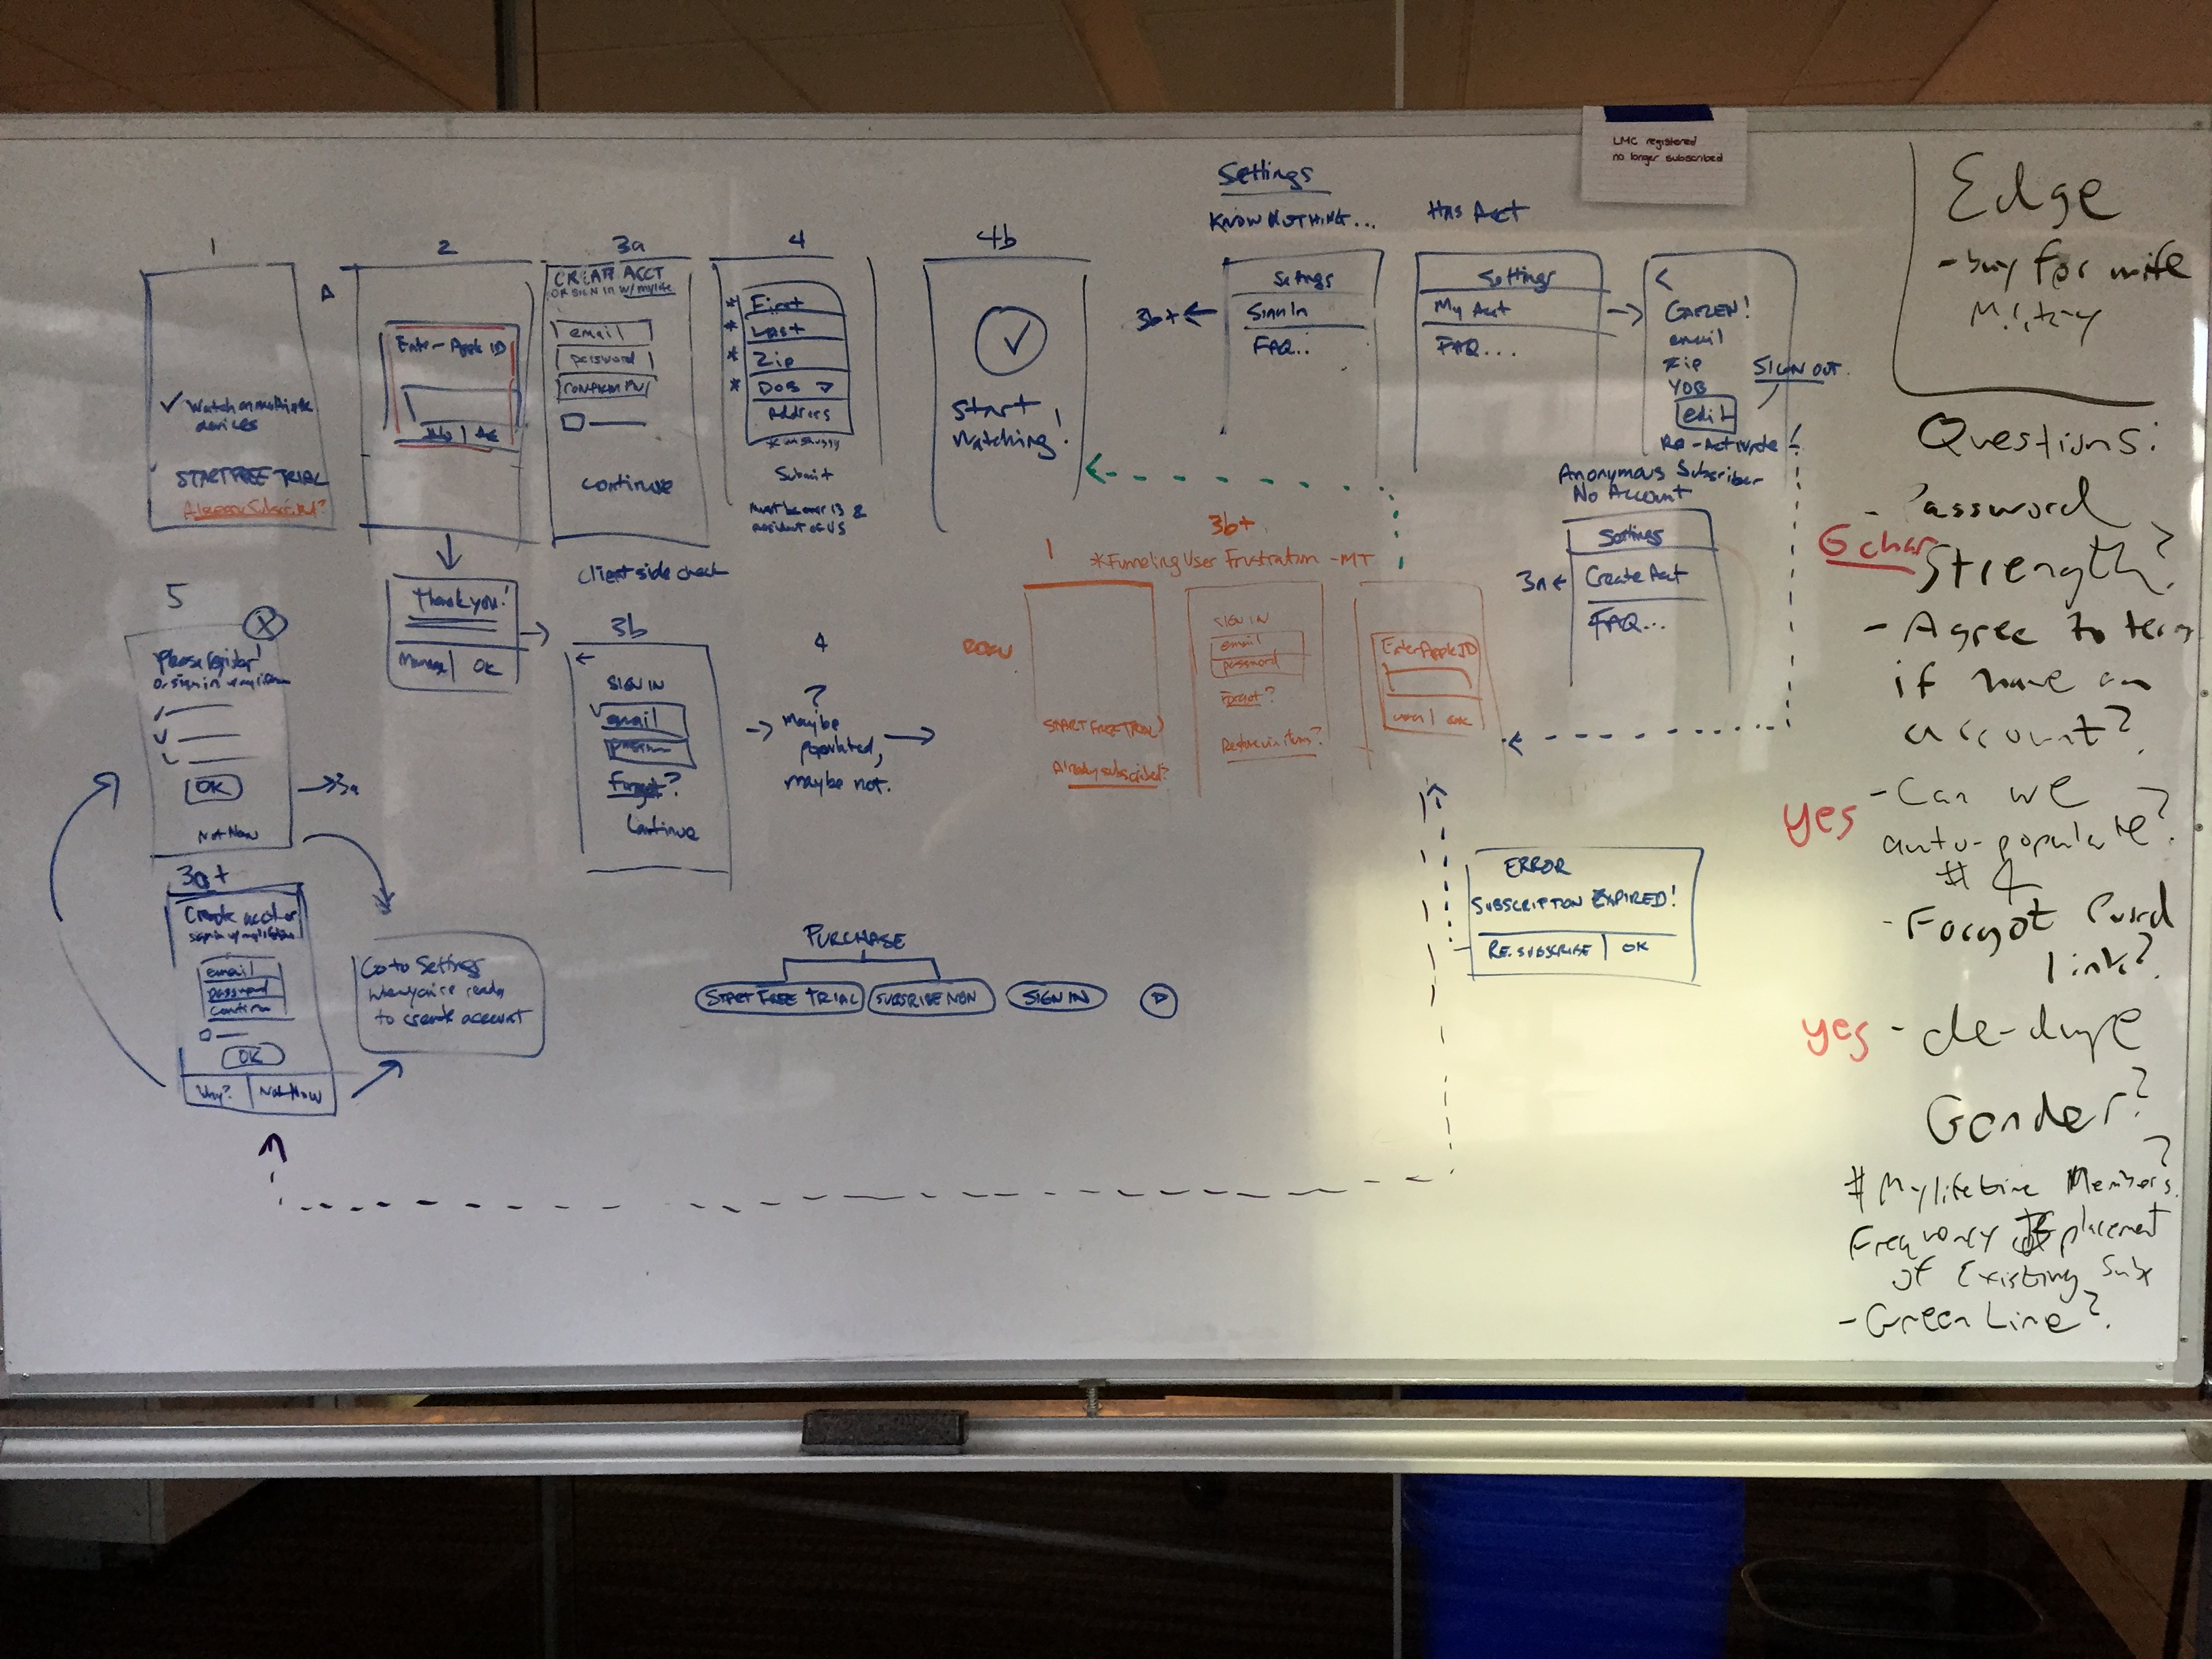 LMC registered
no longer subscribed
Settings
KNOW NOTHING...
HAS Acct
1
2
3a
4
4b
✓ Watch on multiple
devices
START FREE TRIAL
Already Subscribed?
Enter Apple ID
Thank you!
Manage | OK
CREATE ACCT
OR SIGN IN w/ mylife
email
password
CONFIRM PW
continue
client side check
* First
* Last
* Zip
* DOB
Address
Submit
Must be over 13 &
resident of US
✓
Start
Watching!
3b+ ←
Settings
Sign In
FAQ..
Settings
My Acct
FAQ...
<
email
zip
YOB
edit
SIGN OUT
Re-Activate!
Anonymous Subscriber
No Account
Settings
3a ←
Create Acct
FAQ...
5
X
please register!
OK
→ 3a
Not Now
3a+
Create acct or
email
password
confirm
OK
Why? | Not Now
Go to Settings
when you're ready
to create account
3b
←
SIGN IN
email
Forgot?
Continue
4
?
Maybe
populated,
maybe not.
1
3b+
*Funneling User Frustration -MT
ROKU
START FREE TRIAL
Already subscribed?
SIGN IN
email
password
Forgot?
Enter Apple ID
ERROR
SUBSCRIPTION EXPIRED!
RE-SUBSCRIBE | OK
PURCHASE
START FREE TRIAL
SUBSCRIBE NOW
SIGN IN
Edge
- buy for wife
Questions:
- Password
6 char
Strength?
- Agree to terms
if have an
account?
yes
- Can we
auto-populate?
# 4
- Forgot Pword
link?
yes
- de-dupe
Gender?
# Mylifetime Members?
Frequency placement
of Existing Subs
- Green Line?